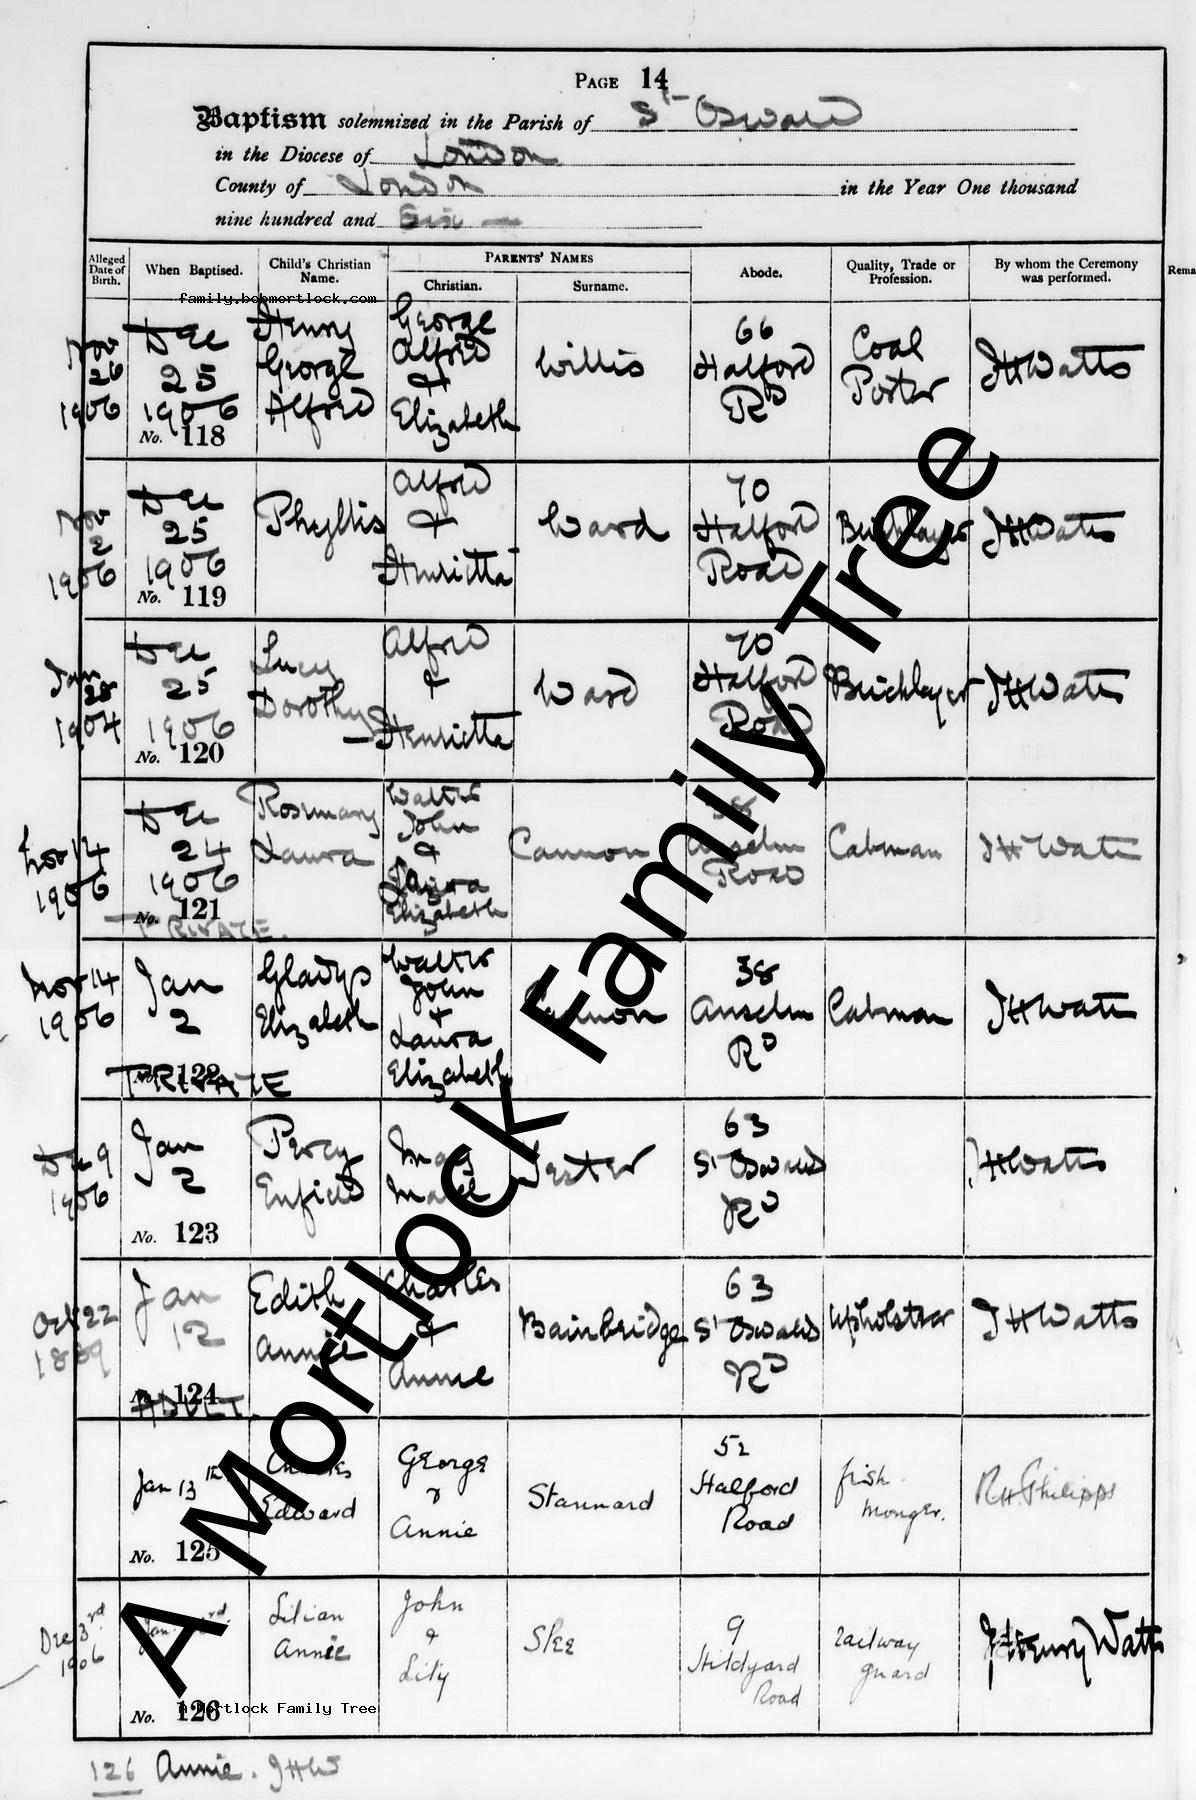 PAGE 14
Baptism solemnized in the Parish of St Oswald
in the Diocese of London
County of London in the Year One thousand
nine hundred and Six —
Alleged Date of Birth.
When Baptised.
Child's Christian Name.
PARENTS' NAMES
Christian.
Surname.
Abode.
Quality, Trade or Profession.
By whom the Ceremony was performed.
Rema
family.bobmortlock.com
Nov 26 1906
Dec 25 1906
No. 118
Henry George Alfred
George Alfred & Elizabeth
Willis
66 Halford Rd
Coal Porter
JHWatts
Nov 2 1906
Dec 25 1906
No. 119
Phyllis
Alfred & Henrietta
Ward
70 Halford Road
Bricklayer
JHWatts
Jan 28 1904
Dec 25 1906
No. 120
Lucy Dorothy
Alfred & Henrietta
Ward
70 Halford Road
Bricklayer
JHWatts
Nov 14 1906
Dec 24 1906
No. 121
PRIVATE.
Rosemary Laura
Walter John & Laura Elizabeth
Cannon
38 Anselm Road
Cabman
JHWatts
Nov 14 1906
Jan 2
No. 122
PRIVATE
Gladys Elizabeth
Walter John & Laura Elizabeth
Cannon
38 Anselm Rd
Cabman
JHWatts
Dec 9 1906
Jan 2
No. 123
Percy Enfield
May Maud
Jester
63 St Oswalds Rd
JHWatts
Oct 22 1889
Jan 12
No. 124
ADULT.
Edith Annie
Charles & Annie
Bainbridge
63 St Oswalds Rd
Upholsterer
JHWatts
Jan 13th
No. 125
Charles Edward
George & Annie
Stannard
52 Halford Road
fish monger.
RH. Philipps
Dec 3rd 1906
Jan rd.
No. 126
Lilian Annie
John & Lily
Slee
9 Hildyard Road
railway guard
JHenry Watts
A Mortlock Family Tree
A Mortlock Family Tree
126 Annie. JHW